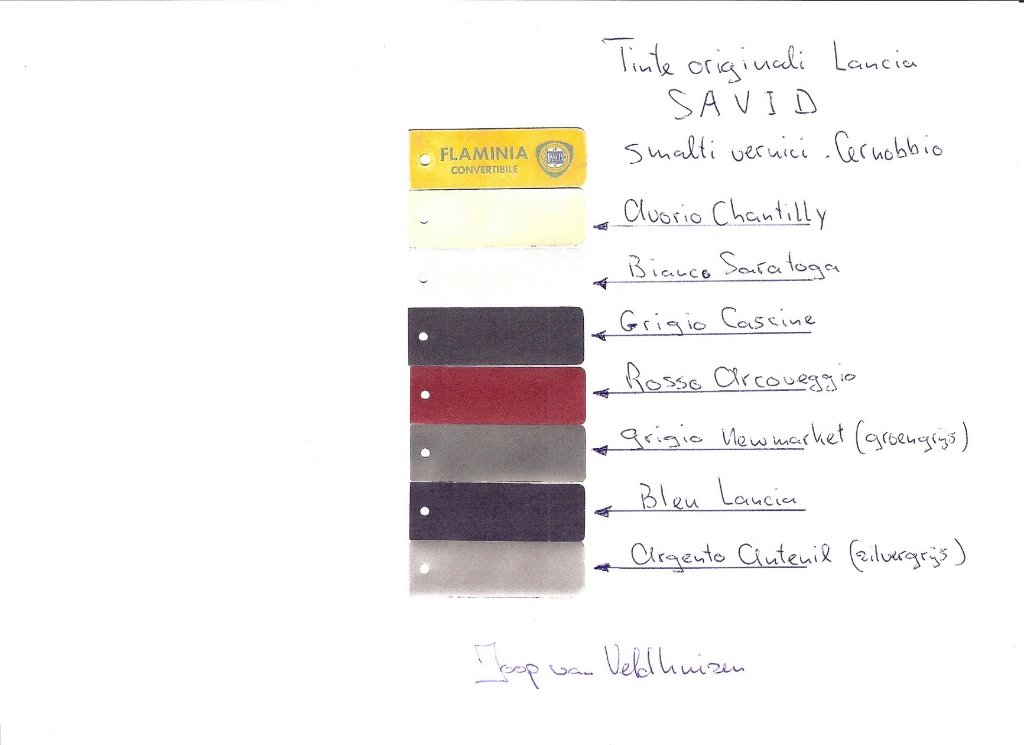 Tinte originali Lancia
SAVID
smalti vernici . Cernobbio
FLAMINIA
CONVERTIBILE
LANCIA
Avorio Chantilly
Bianco Saratoga
Grigio Cascine
Rosso Arcoveggio
grigio Newmarket (groengrijs)
Bleu Lancia
Argento Auteuil (zilvergrijs)
Joop van Veldhuizen